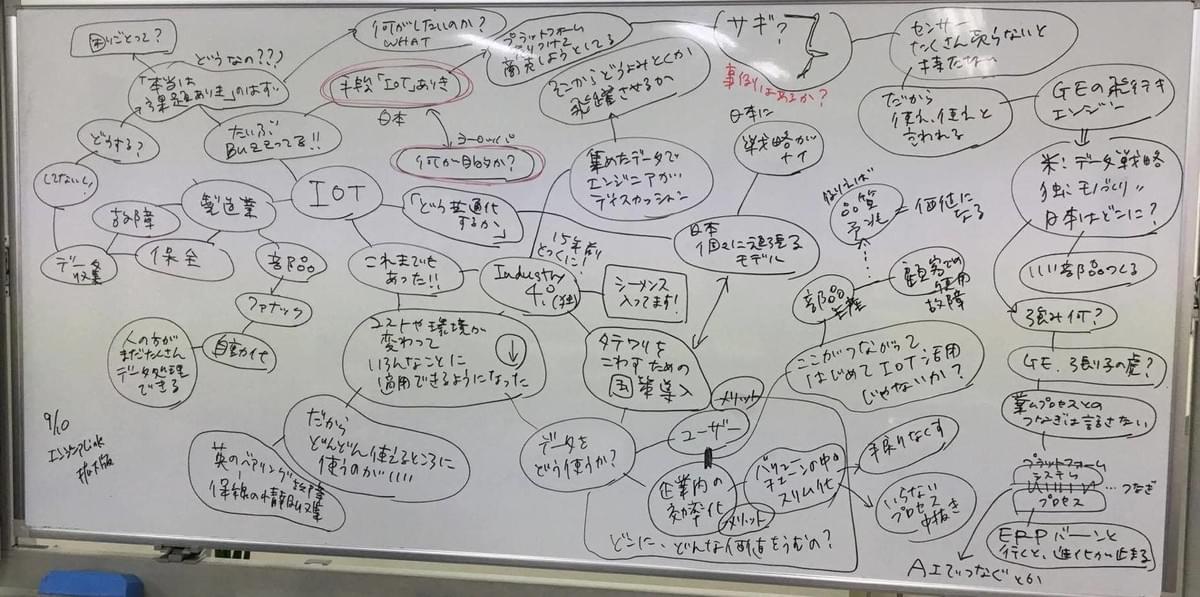 困りごとって?
どうなの???
「本当は
課題ありき」のはず
何がしたいのか?
WHAT
手段「IOT」ありき
日本
ヨーロッパ
何が目的か?
プラットフォーム
商売しようとしてる
そこからどうよみとくか
飛躍させるか
サギ?
事例はあるか?
センサー
たくさん売らないと
だから
使え、使えと
言われる
GEの飛行キ
エンジン
どうする?
してないし!
だいぶ
BUZZってる!!
IOT
製造業
故障
保全
データ
収集
部品
ファナック
自動化
人の方が
まだたくさん
データ処理
できる
これまでも
あった!!
「どう共通化
するか」
集めたデータで
エンジニアが
ディスカッション
日本に
戦略が
ナイ
日本
個々に頑張る
モデル
15年前
とっくに!
Industry
4.0(独)
シーメンス
入ってます!
タテワリを
こわすための
国策導入
コストや環境が
変わって
いろんなことに
適用できるようになった
だから
どんどん使えるところに
使うのがいい
英のベアリング故障
保線の情報収集
データを
どう使うか?
ユーザー
メリット
企業内の
効率化
メリット
バリューチェーンの中の
スリム化
手戻りなくす
いらない
プロセス
中抜き
どこに、どんな価値をうむの?
例えば
品質
予兆
=価値に
なる
部品
顧客での
使用
故障
ここがつながって
はじめてIOT活用
じゃないか?
米:データ戦略
独:モノづくり〃
日本はどこに?
いい部品つくる
強み何?
GE、張り子の虎?
業ムプロセスとの
つなぎは話さない
プラットフォーム
システム
…つなぎ
プロセス
ERPバーンと
行くと、進化が止まる
AIでつなぐとか
9/10